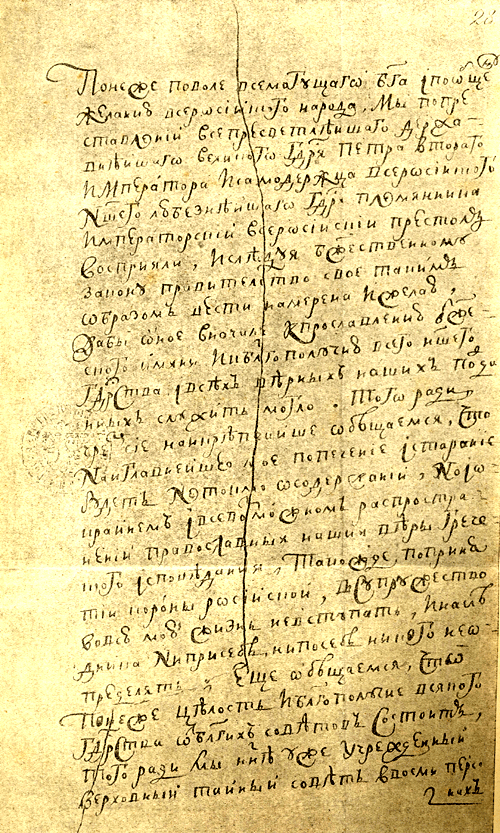 Понеже поволе всемогущаго бга iпообще му
желанию всероссiйского народа, мы попре
ставленiи всепресветлѣйшаго держа
внѣйшаго великого гдря Петра втораго
императора исамодержца всеросiйского
ншего любезнѣйшаго гдря племянника
императорскiй всеросiйскiй престолъ
восприяли, ислѣдуя бжественному
закону правительство свое такимъ
образомъ вести намерена ижелаю,
дабы оное вначале кпрославлению бже
ского имени иблгополучию всего ншего
гдрства iвсѣхъ вѣрныхъ нашихъ подда
нныхъ служить могло. Того ради,
чрез сiе наикрѣпчайше обѣщаемся, что
наиглавнейшее мое попечение iстарание
будетъ нетокмо осодержанiи, но iо
крайнемъ iвсевозможномъ распростра
ненiи православныя нашия вѣры грече
ского iсповедания, такожде, поприня
тiи короны росiйской, всупружество
вовсю мою жизнь невступать, инаслѣ
дника ниприсебѣ, нипосебѣ никого неоо
пределять. Еще обѣщаемся, что
понеже цѣлость иблгополучие всякого
гдрства отблгихъ совѣтовъ состоитъ,
того ради мы ннѣ уже учрежденный
верховный тайный совѣтъ ввосми персо
нахъ